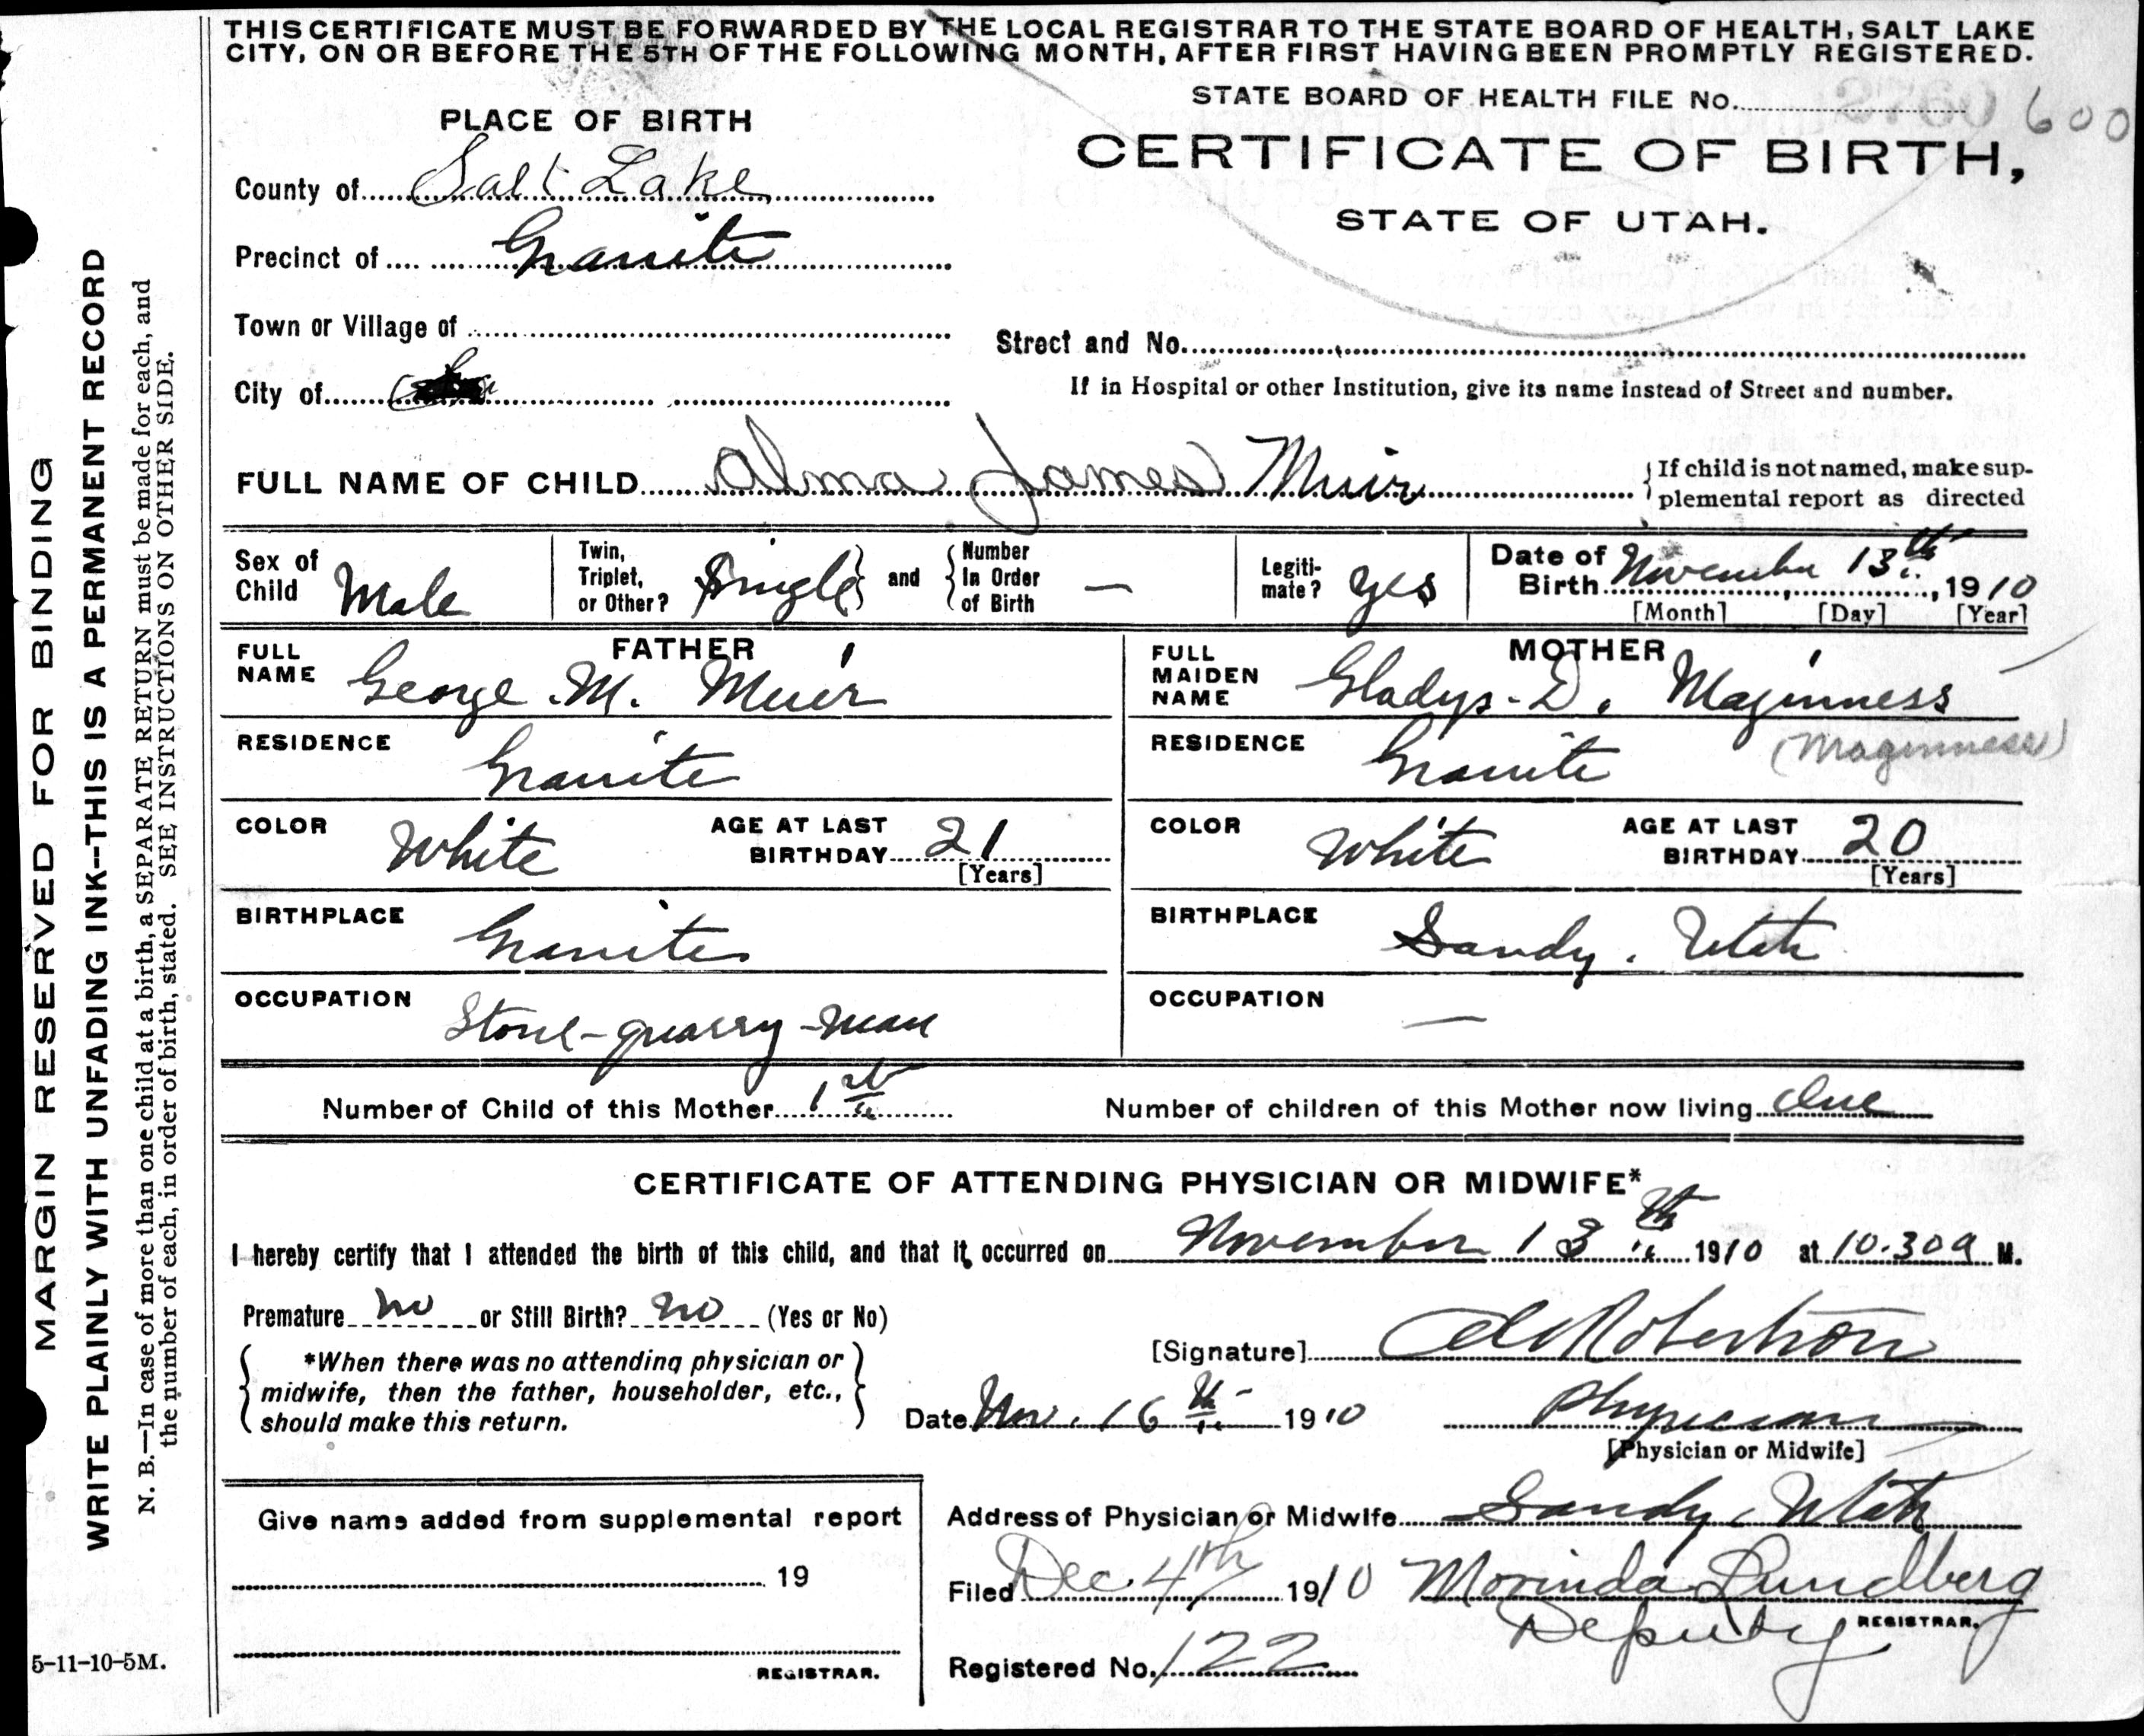 THIS CERTIFICATE MUST BE FORWARDED BY THE LOCAL REGISTRAR TO THE STATE BOARD OF HEALTH, SALT LAKE
CITY, ON OR BEFORE THE 5TH OF THE FOLLOWING MONTH, AFTER FIRST HAVING BEEN PROMPTLY REGISTERED.
STATE BOARD OF HEALTH FILE No. 600
PLACE OF BIRTH
CERTIFICATE OF BIRTH,
STATE OF UTAH.
County of Salt Lake
Precinct of Granite
Town or Village of
Street and No.
City of
If in Hospital or other Institution, give its name instead of Street and number.
FULL NAME OF CHILD Alma James Muir
If child is not named, make sup-
plemental report as directed
Sex of Child Male
Twin, Triplet, or Other? Single and Number In Order of Birth —
Legiti-mate? yes
Date of Birth November 13th, 1910
[Month] [Day] [Year]
FATHER
FULL NAME George M. Muir
RESIDENCE Granite
COLOR White AGE AT LAST BIRTHDAY 21
[Years]
BIRTHPLACE Granite
OCCUPATION Stone-quarry-man
MOTHER
FULL MAIDEN NAME Gladys D. Maginness
(Maginness)
RESIDENCE Granite
COLOR White AGE AT LAST BIRTHDAY 20
[Years]
BIRTHPLACE Sandy, Utah
OCCUPATION —
Number of Child of this Mother 1st Number of children of this Mother now living One
CERTIFICATE OF ATTENDING PHYSICIAN OR MIDWIFE*
I hereby certify that I attended the birth of this child, and that it occurred on November 13th 1910 at 10.30 a M.
Premature no or Still Birth? no (Yes or No)
*When there was no attending physician or
midwife, then the father, householder, etc.,
should make this return.
[Signature] Robertson
Date Nov. 16th 1910 Physician
[Physician or Midwife]
Give name added from supplemental report
19
REGISTRAR.
Address of Physician or Midwife Sandy, Utah
Filed Dec. 4th 1910 Morinda Lundberg
Deputy REGISTRAR.
Registered No. 122
MARGIN RESERVED FOR BINDING
WRITE PLAINLY WITH UNFADING INK--THIS IS A PERMANENT RECORD
N. B.—In case of more than one child at a birth, a SEPARATE RETURN must be made for each, and
the number of each, in order of birth, stated. SEE INSTRUCTIONS ON OTHER SIDE.
5-11-10-5M.